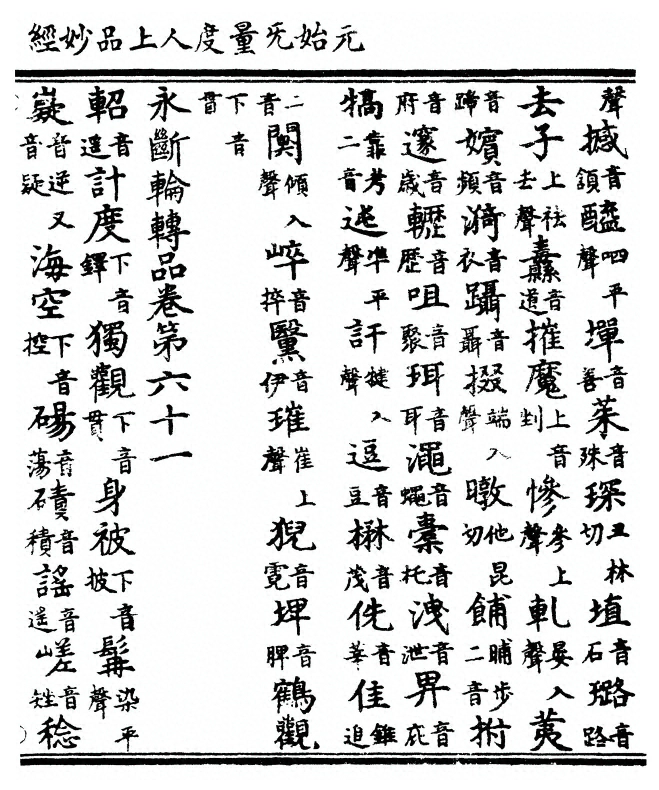 元始无量度人上品妙經
聲撼音頷醯呬平聲墠音善茱音殊琛丑林切埴音石璐音路
去子上袪去聲纛音道摧魔上音剉慘參上聲軋晏入聲荑
音蹄嬪音頻漪音衣躡音聶掇端入聲暾他昆切餔晡步二音柎
音府邃音歲轣音歷咀音聚珥音耳澠音蠅橐音托洩音泄畀音庇
犒靠考二音迍準平聲訐揵入聲逗音豆楙音茂侁音莘隹錐追
二音闃傾入聲崒音捽黳音伊璀崔上聲猊音霓埤音脾鶴觀
下音貫
永斷輪轉品卷第六十一
軺音遥計度下音鐸獨觀下音貫身被下音披髯染平聲
嶷音逆又音疑海空下音控碭音蕩磧音積謠音遥嵯音矬稔